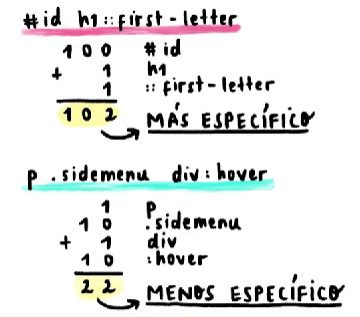 #id h1::first-letter
100 #id
+ 1 h1
1 ::first-letter
102
MÁS ESPECÍFICO
p .sidemenu div:hover
1 p
10 .sidemenu
+ 1 div
10 :hover
22
MENOS ESPECÍFICO